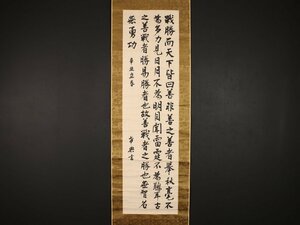 戰勝而天下皆曰善非善之善者舉秋毫不
為多力見日月不為明目聞雷霆不為聰耳古
之善戰者勝易勝者也故善戰者之勝也無智名
無勇功